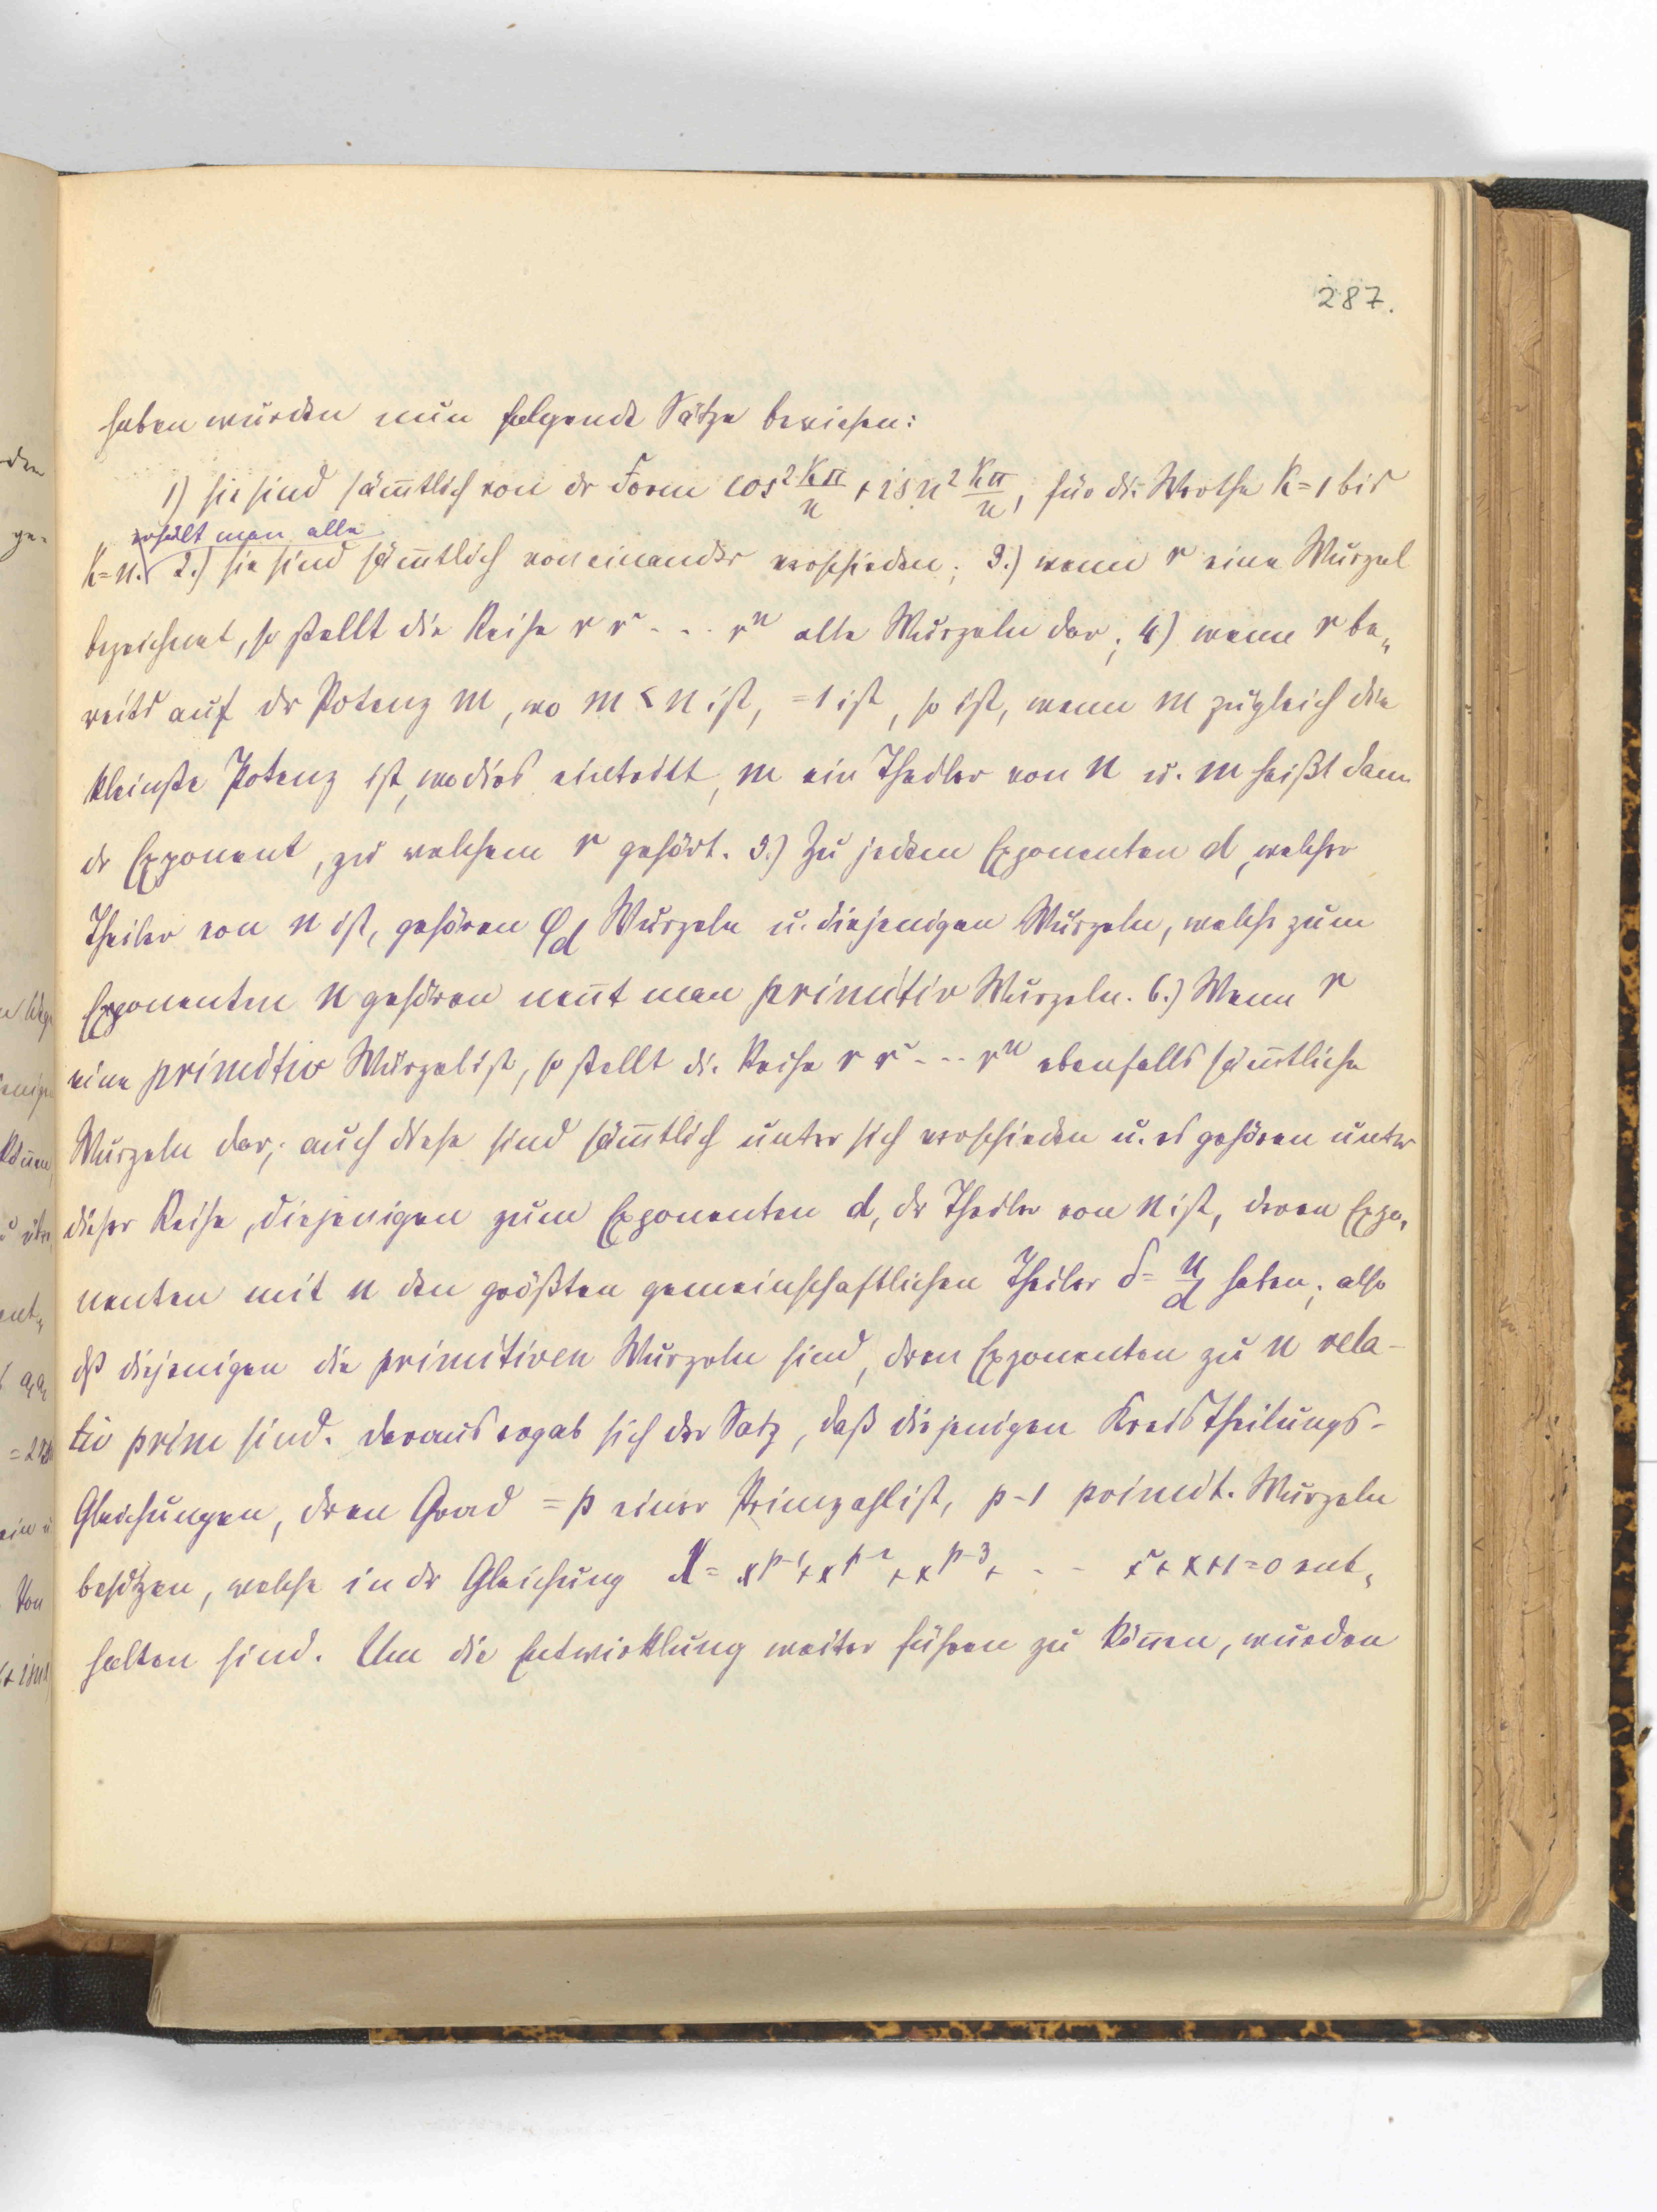 287.
haben wurden nun folgende Sätze bewiesen:
1) sie sind säm̅tlich von dr Form cos 2Kπ/n + i sin 2Kπ/n, für die Werthe K=1 bis
erhält man alle
K=n. 2.) sie sind säm̅tlich voneinander verschieden; 3.) wenn r eine Wurzel
bezeichnet, so stellt die Reihe r r² - - . rⁿ alle Wurzeln dar; 4) wenn r be„
reits auf dr Potenz m, wo m < n ist, =1 ist, so ist, wenn m zugleich die
kleinste Potenz ist, wo dies eintritt, m ein Theiler von n u. m heißt dann
dr Exponent, zu welchem r gehört. 5.) Zu jedem Exponenten d, welcher
Theiler von n ist, gehören φd Wurzeln u. diejenigen Wurzeln, welche zum
Exponenten n gehören nen̅t man primitiv Wurzeln. 6.) Wenn r
eine primitiv Wurzel ist, so stellt die Reihe r r² - - - rⁿ ebenfalls säm̅tliche
Wurzeln dar; auch diese sind säm̅tlich unter sich verschieden u. es gehören unter
dieser Reihe, diejenigen zum Exponenten d, dr Theiler von n ist, deren Expo„
nenten mit n den größten gemeinschaftlichen Theiler δ = n/d haben; also
dß diejenigen die primitiven Wurzeln sind, dren Exponenten zu n rela-
tiv prim sind. Daraus ergab sich der Satz, daß diejenigen Kreistheilungs-
Gleichungen, dren Grad = p einer Primzahl ist, p-1 primit. Wurzeln
besitzen, welche in dr Gleichung X = xᵖ⁻¹ + xᵖ⁻² + xᵖ⁻³ + - - x² + x + 1 = 0 ent„
halten sind. Um die Entwicklung weiter führen zu kön̅en, wurden